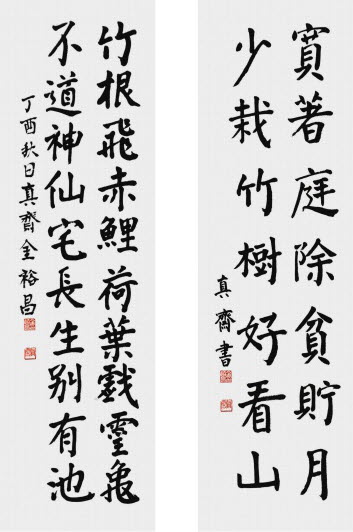 寬著庭除貪貯月
少栽竹樹好看山
真齋書
竹根飛赤鯉荷葉戲靈龜
不道神仙宅長生别有池
丁酉秋日真齋金裕昌